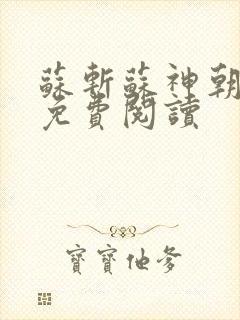 蘇斬蘇神朝
免費閱讀
寶寶他爹